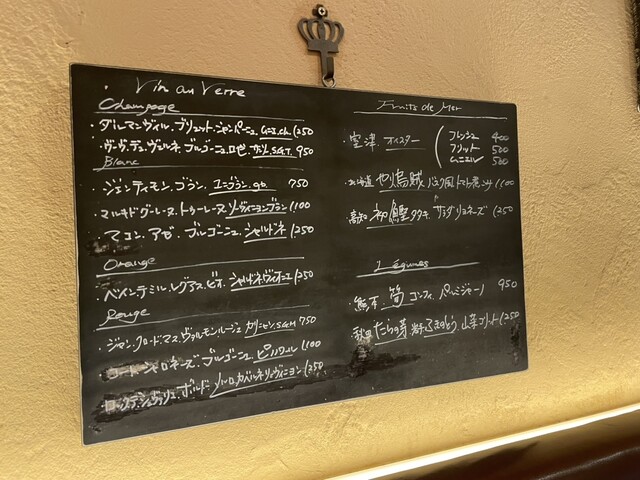 Vin au Verre
Champagne
ダルマンヴィル・ブリュット・シャンパーニュ 1250
ヴーヴ・デュ・ヴェルネ・ブルゴーニュ・ロゼ 950
Blanc
ジェンティモン・ブラン・ユニブラン 750
マルキ・ド・グレーヌ・トゥーレーヌ・ソーヴィニヨンブラン 1100
マコン・アゼ・ブルゴーニュ・シャルドネ 1250
Orange
ペイン・テミル・レグアス・ビオ・シャルドネ・ヴィオニエ 1250
Rouge
ジャン・クロード・マス・ヴァルモン・ルージュ 750
ブルゴーニュ・ピノノワール 1100
ボルドー メルロ・カベルネソーヴィニヨン 1250
Fruits de Mer
・室津 オイスター
フレッシュ 400
フリット 500
ムニエル 500
北海道 やり烏賊 バスク風トマト煮込み 1100
高知 初鰹 タタキ サラダ・リヨネーズ 1250
Légumes
・熊本 筍 コンフィ・パルミジャーノ 950
たらの芽 ふきのとう 山菜フリット 1250